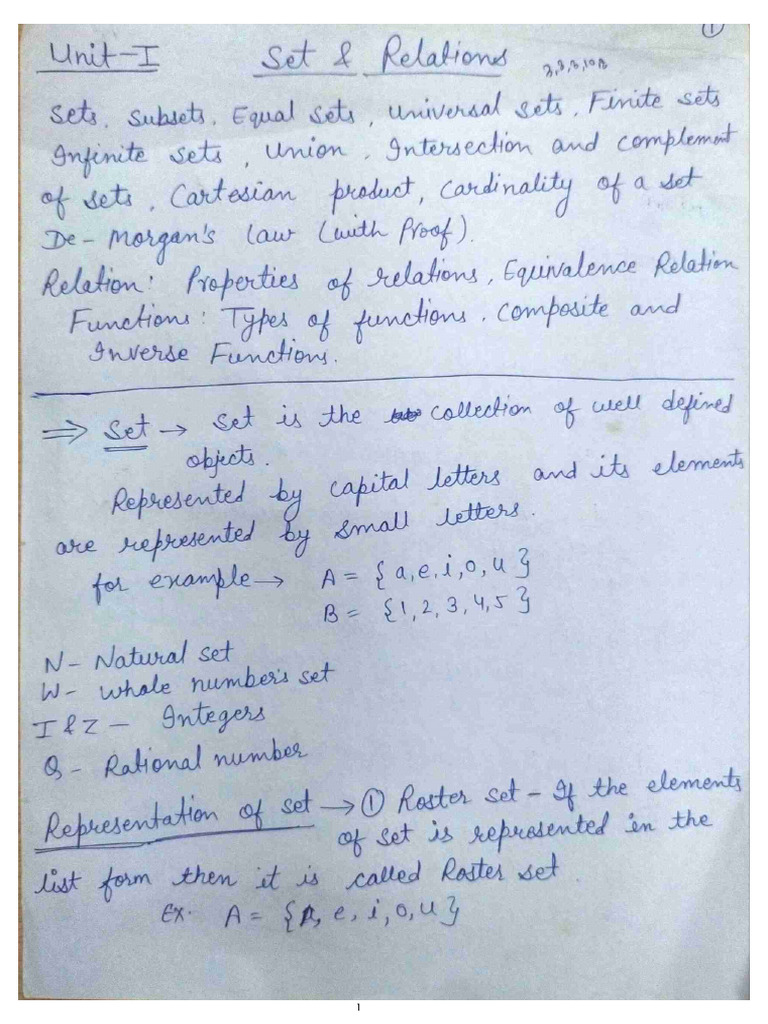 ①
Unit-I Set & Relations 3,3,3,10B
Sets, Subsets, Equal Sets, Universal Sets, Finite Sets
Infinite Sets, Union, Intersection and complement
of Sets, Cartesian product, Cardinality of a set
De-Morgan's Law (with Proof).
Relation: Properties of relations, Equivalence Relation
Functions: Types of functions, Composite and
Inverse Functions.
⇒ Set → Set is the collection of well defined
objects.
Represented by capital letters and its elements
are represented by small letters.
for example → A = {a, e, i, o, u}
B = {1, 2, 3, 4, 5}
N - Natural set
W - Whole number's set
I & Z - Integers
Q - Rational number
Representation of set → ① Roster set - If the elements
of set is represented in the
list form then it is called Roster set.
Ex. A = {a, e, i, o, u}
1